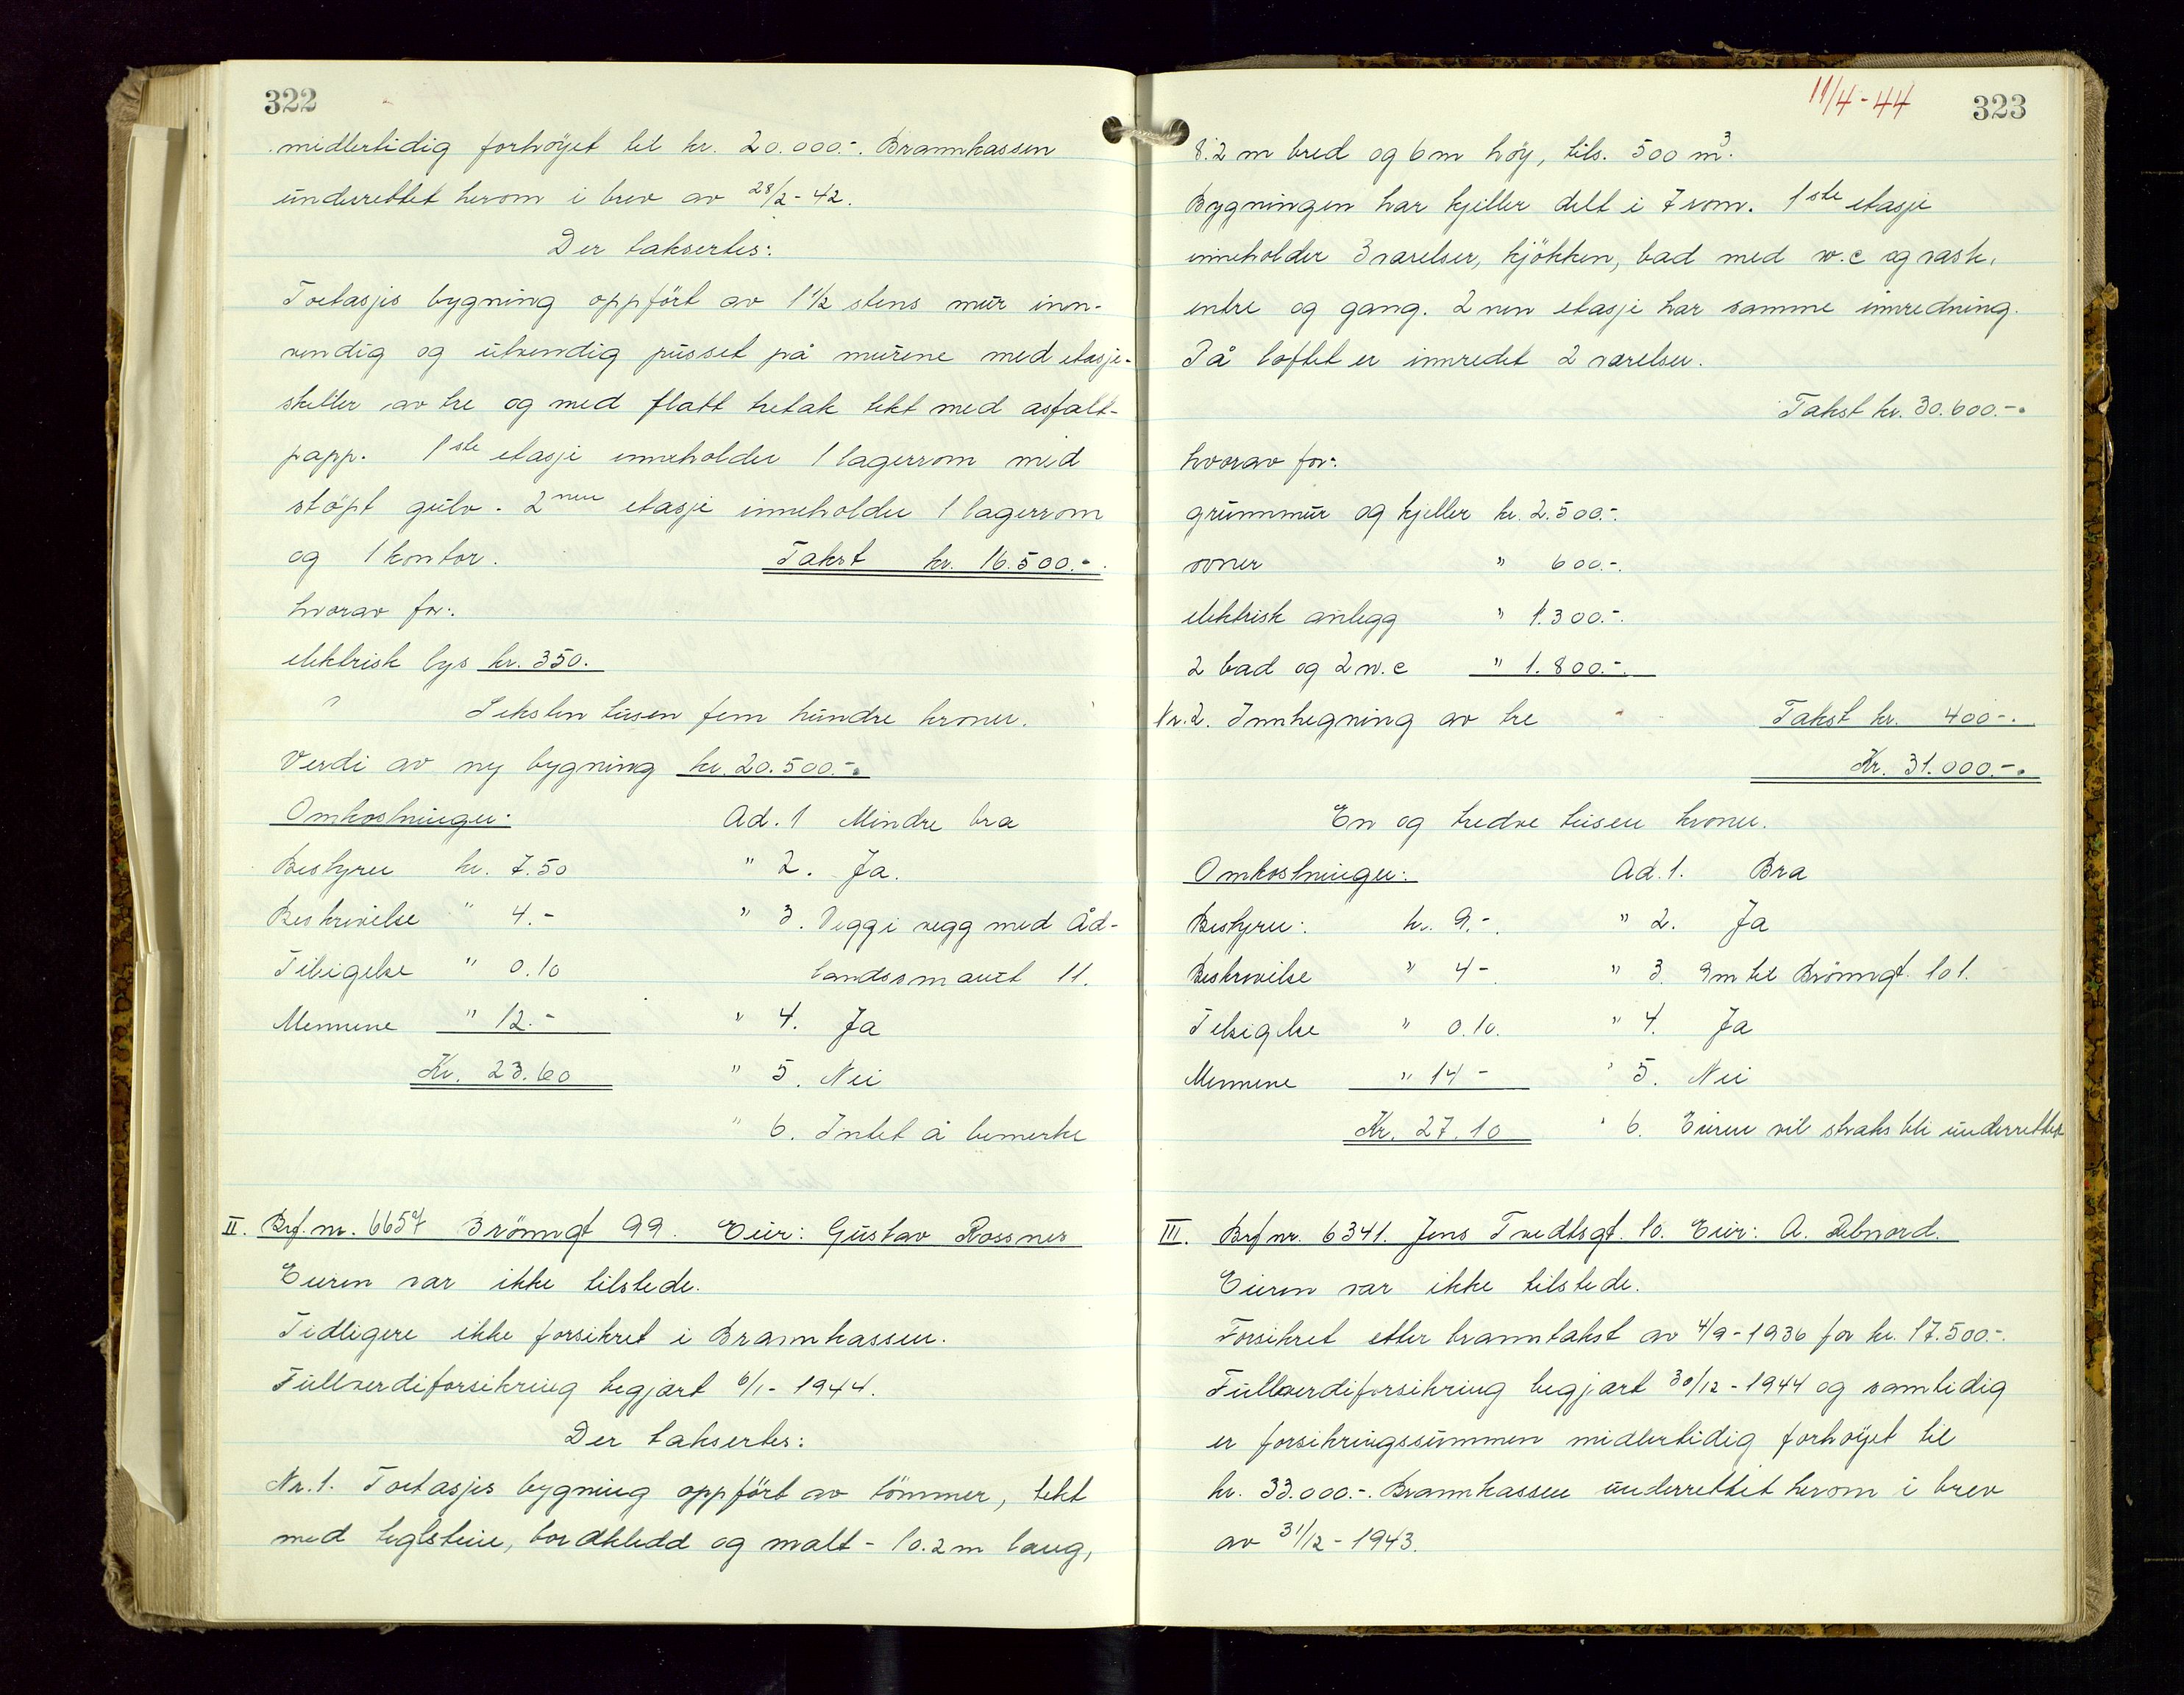 322
midlertidig forhöyet til kr. 20.000.-. Brannkassen
underrettet herom i brev av 28/2-42.
Der taksertes:
Toetasjes bygning oppfört av 1 1/2 stens mur inn-
vendig og utvendig pusset på murene med etasje-
skiller av tre og med flatt tretak tekt med asfalt-
papp. 1ste etasje inneholder 1 lagerrom med
stöpt gulv. 2nen etasje inneholder 1 lagerrom
og 1 kontor. Takst kr. 16.500.-.
hvorav for:
elektrisk lys kr. 350.
Seksten tusen fem hundre kroner.
Verdi av ny bygning kr. 20.500.-.
Omkostninger: Ad. 1 Mindre bra
Bestyrer kr. 7.50 " 2. Ja.
Beskrivelse " 4.- " 3. Vegg i vegg med Åd-
Tilsigelse " 0.10 landssmauet 11.
Mennene " 12.- " 4. Ja
Kr. 23.60 " 5. Nei
" 6. Intet å bemerke
II. Brf. nr. 6657 Brönngt 99. Eier: Gustav Rossnes
Eieren var ikke tilstede.
Tidligere ikke forsikret i Brannkassen.
Fullverdiforsikring begjært 6/1-1944.
Der taksertes:
Nr. 1. Toetasjes bygning oppfört av tömmer, tekt
med teglstein, bordkledd og malt - 10.2 m lang,
11/4-44 323
8.2 m bred og 6 m höy, tils. 500 m3.
Bygningen har kjeller delt i 7 rom. 1ste etasje
inneholder 3 værelser, kjökken, bad med w.c og vask,
entre og gang. 2nen etasje har samme innredning.
På loftet er innredet 2 værelser.
Takst kr. 30.600.-.
hvorav for:
grunnmur og kjeller kr. 2.500.-.
ovner " 600.-.
elektrisk anlegg " 1.300.-.
2 bad og 2 w.c " 1.800.-.
Nr. 2. Innhegning av tre Takst kr. 400-.
Kr. 31.000.-.
En og tredve tusen kroner.
Omkostninger: Ad. 1. Bra
Bestyrer: kr. 9.-. " 2. Ja
Beskrivelse " 4-. " 3. 9m til Brönngt. 101.
Tilsigelse " 0.10. " 4. Ja
Mennene " 14- " 5. Nei
Kr. 27.10 " 6. Eieren vil straks bli underrettet
III. Brf nr. 6341. Jens Tvedtsgt. 10. Eier: A. Rebnord.
Eieren var ikke tilstede.
Forsikret etter branntakst av 4/9-1936 for kr. 17.500.-.
Fullverdiforsikring begjært 30/12-1944 og samtidig
er forsikringssummen midlertidig forhöyet til
kr. 33.000.-. Brannkassen underrettet herom i brev
av 31/12-1943.